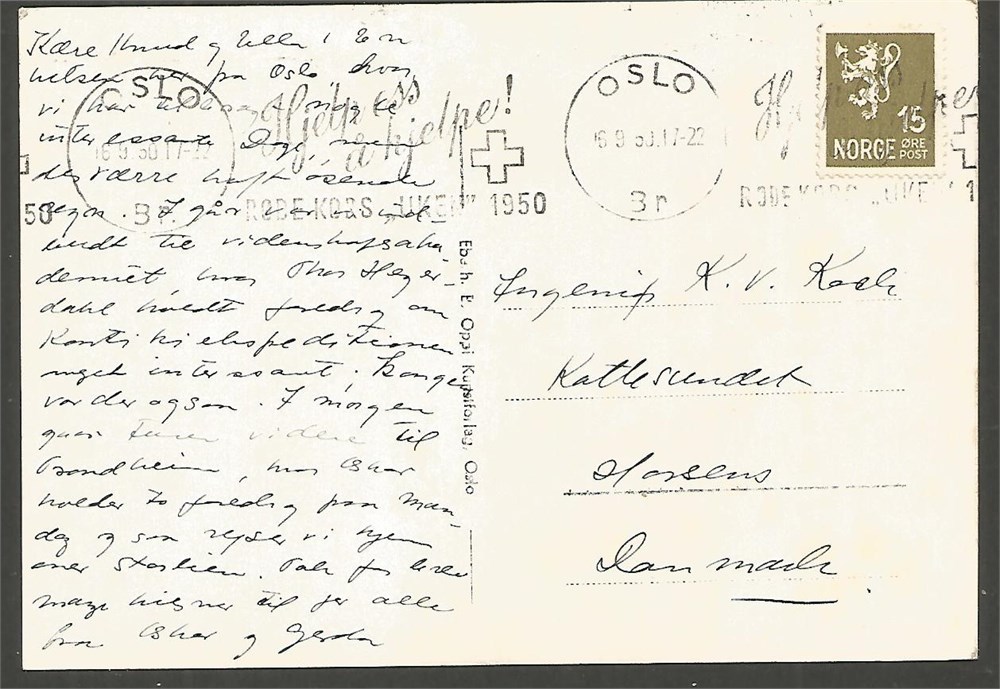 Kære Knud og Ulla! En
hilsen her fra Oslo, hvor
vi har tilbragt nogle
interessante Dage, men
desværre haft øsende
regn. I går var vi ind-
budt til videnskapsaka-
demiet, hvor Thor Heyer-
dahl holdt foredrag om
Kontiki ekspeditionen
meget interessant; Kongen
var der ogson. I morgen
gaar turen videre til
Trondheim, hvor Oskar
holder to foredrag paa Man-
dag og saa rejser vi hjem
over Storlien. Tak for
mange hilsner til jer alle
fra Oskar og Gerda
OSLO
16.9.50.17-22
Br
Hjelp oss
å hjelpe!
RØDE KORS „UKEN" 1950
OSLO
16.9.50.17-22
Br
RØDE KORS „UKE
50
NORGE 15 ØRE POST
Eberh. B. Oppi Kunstforlag, Oslo
Ingeniør K. V. Koch
Kattesundet
Horsens
Danmark